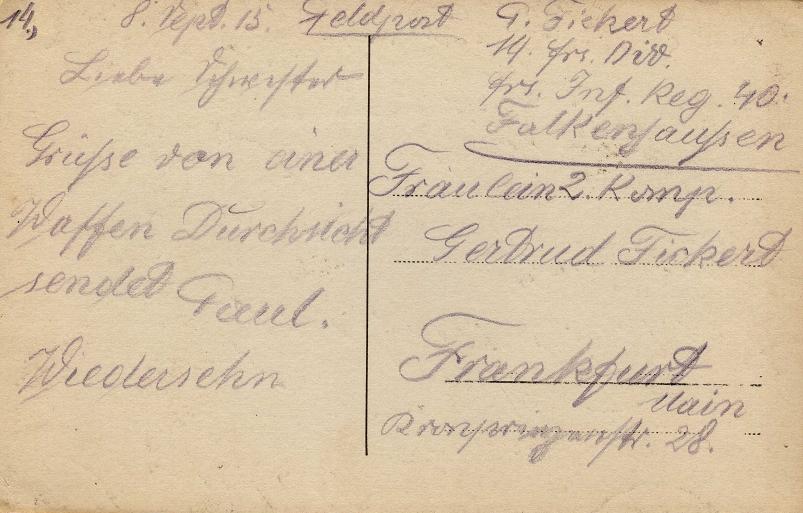 14.,
8. Sept. 15. Feldpost
Liebe Schwester
Grüsse von einer
Waffen Durchsicht
sendet Paul.
Wiedersehn
P. Fickert
14. Ers. Div.
Ers. Inf. Reg. 40.
Falkenhausen
2. Komp.
Fräulein
Gertrud Fickert
Frankfurt
Main
Kronprinzenstr. 28.